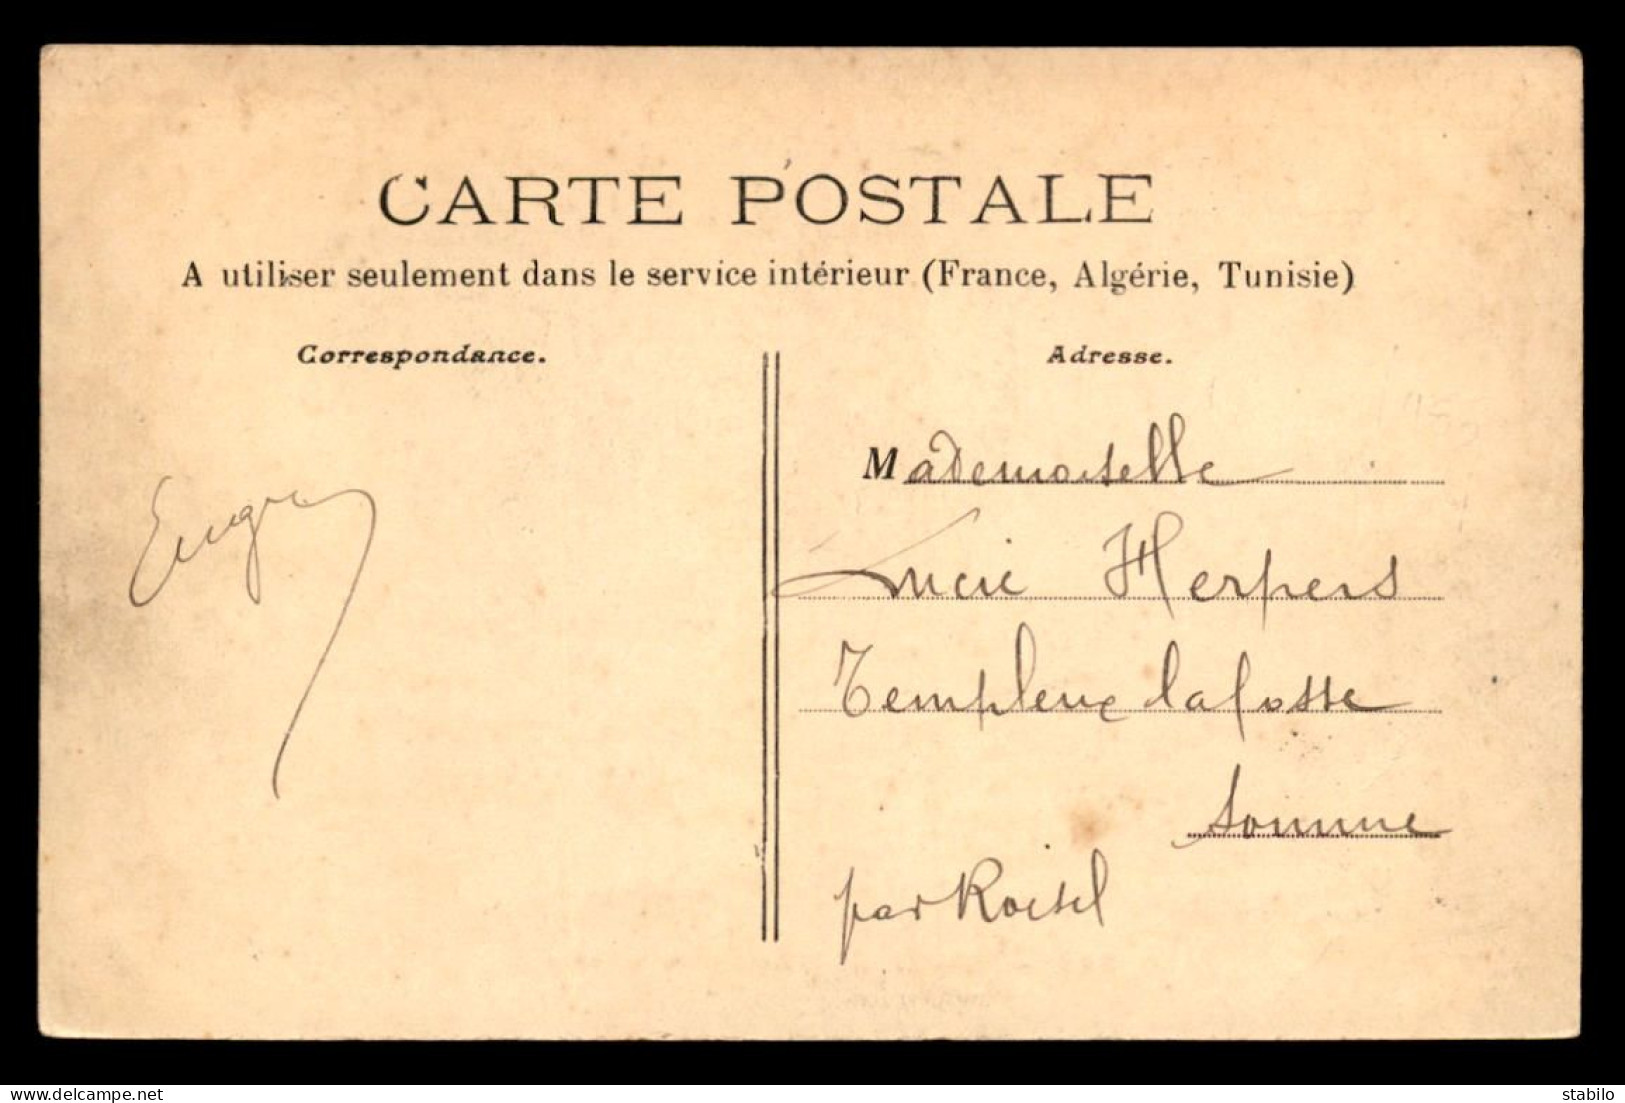 CARTE POSTALE
A utiliser seulement dans le service intérieur (France, Algérie, Tunisie)
Correspondance.
Adresse.
Mademoiselle
Lucie Herpers
Templeux lafosse
Somme
par Roisel
delcampe.net
stabilo